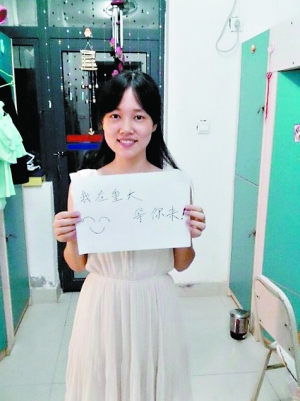 我在重大
等你来!